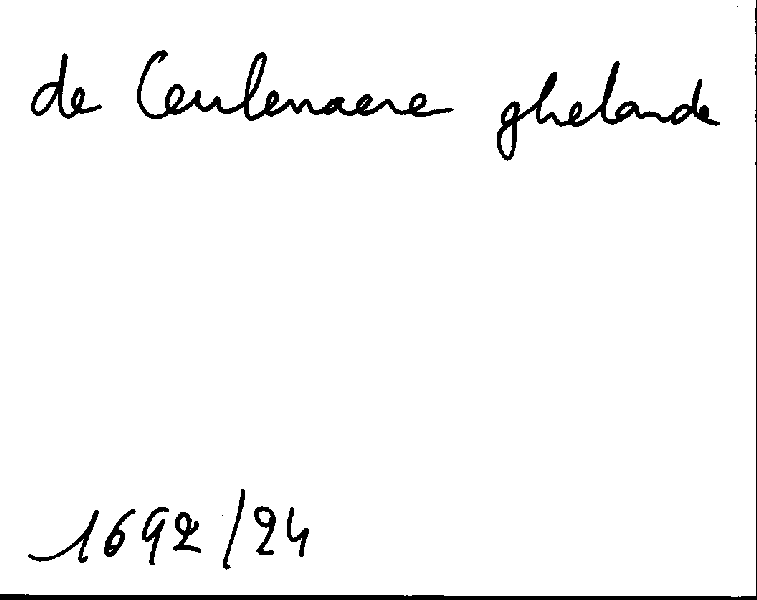 de Ceulenaere ghelande
1692/24